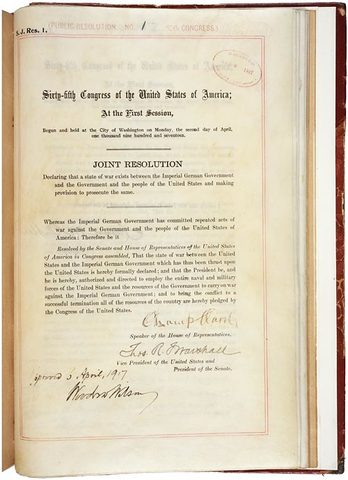 S. J. Res. 1.
(PUBLIC RESOLUTION, NO. 1
CONGRESS)
Sixty-fifth Congress of the United States of America;
At the First Session,
Begun and held at the City of Washington on Monday, the second day of April,
one thousand nine hundred and seventeen.
JOINT RESOLUTION
Declaring that a state of war exists between the Imperial German Government
and the Government and the people of the United States and making
provision to prosecute the same.
Whereas the Imperial German Government has committed repeated acts of
war against the Government and the people of the United States of
America: Therefore be it
Resolved by the Senate and House of Representatives of the United States
of America in Congress assembled, That the state of war between the United
States and the Imperial German Government which has thus been thrust upon
the United States is hereby formally declared; and that the President be, and
he is hereby, authorized and directed to employ the entire naval and military
forces of the United States and the resources of the Government to carry on war
against the Imperial German Government; and to bring the conflict to a
successful termination all of the resources of the country are hereby pledged by
the Congress of the United States.
Champ Clark
Speaker of the House of Representatives.
Thos. R. Marshall
Vice President of the United States and
President of the Senate.
Approved 6 April, 1917
Woodrow Wilson